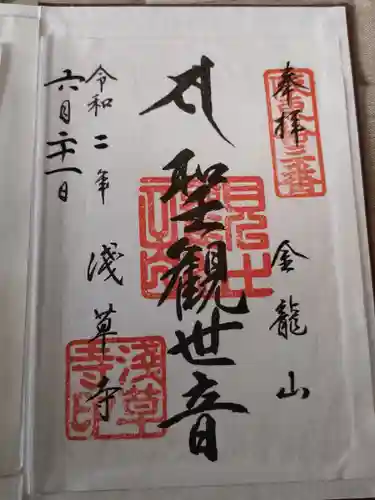 奉拝
坂東拾三番
金龍山
聖觀世音
令和二年
六月二十一日
淺草寺
淺草寺印